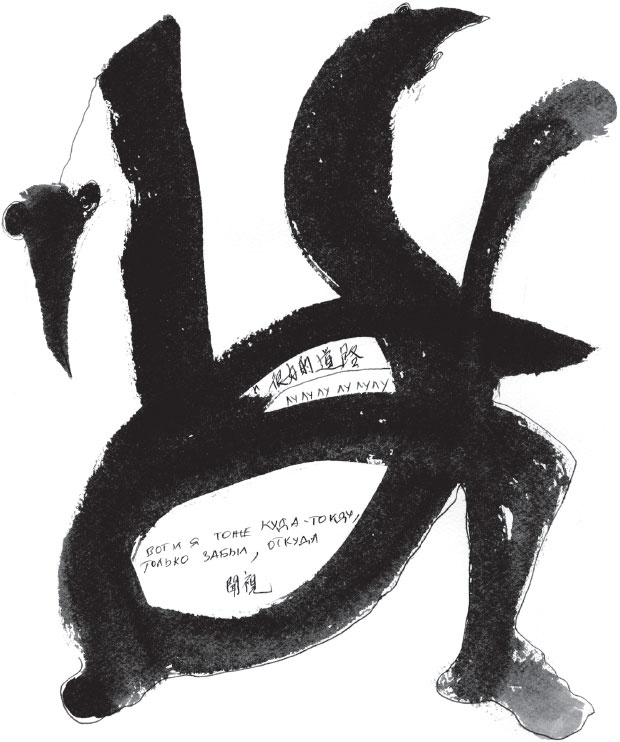 很好的道路
ЛУ ЛУ ЛУ ЛУ ЛУЛУ
ВОТ И Я ТОЖЕ КУДА-ТО ИДУ,
ТОЛЬКО ЗАБЫЛ, ОТКУДА